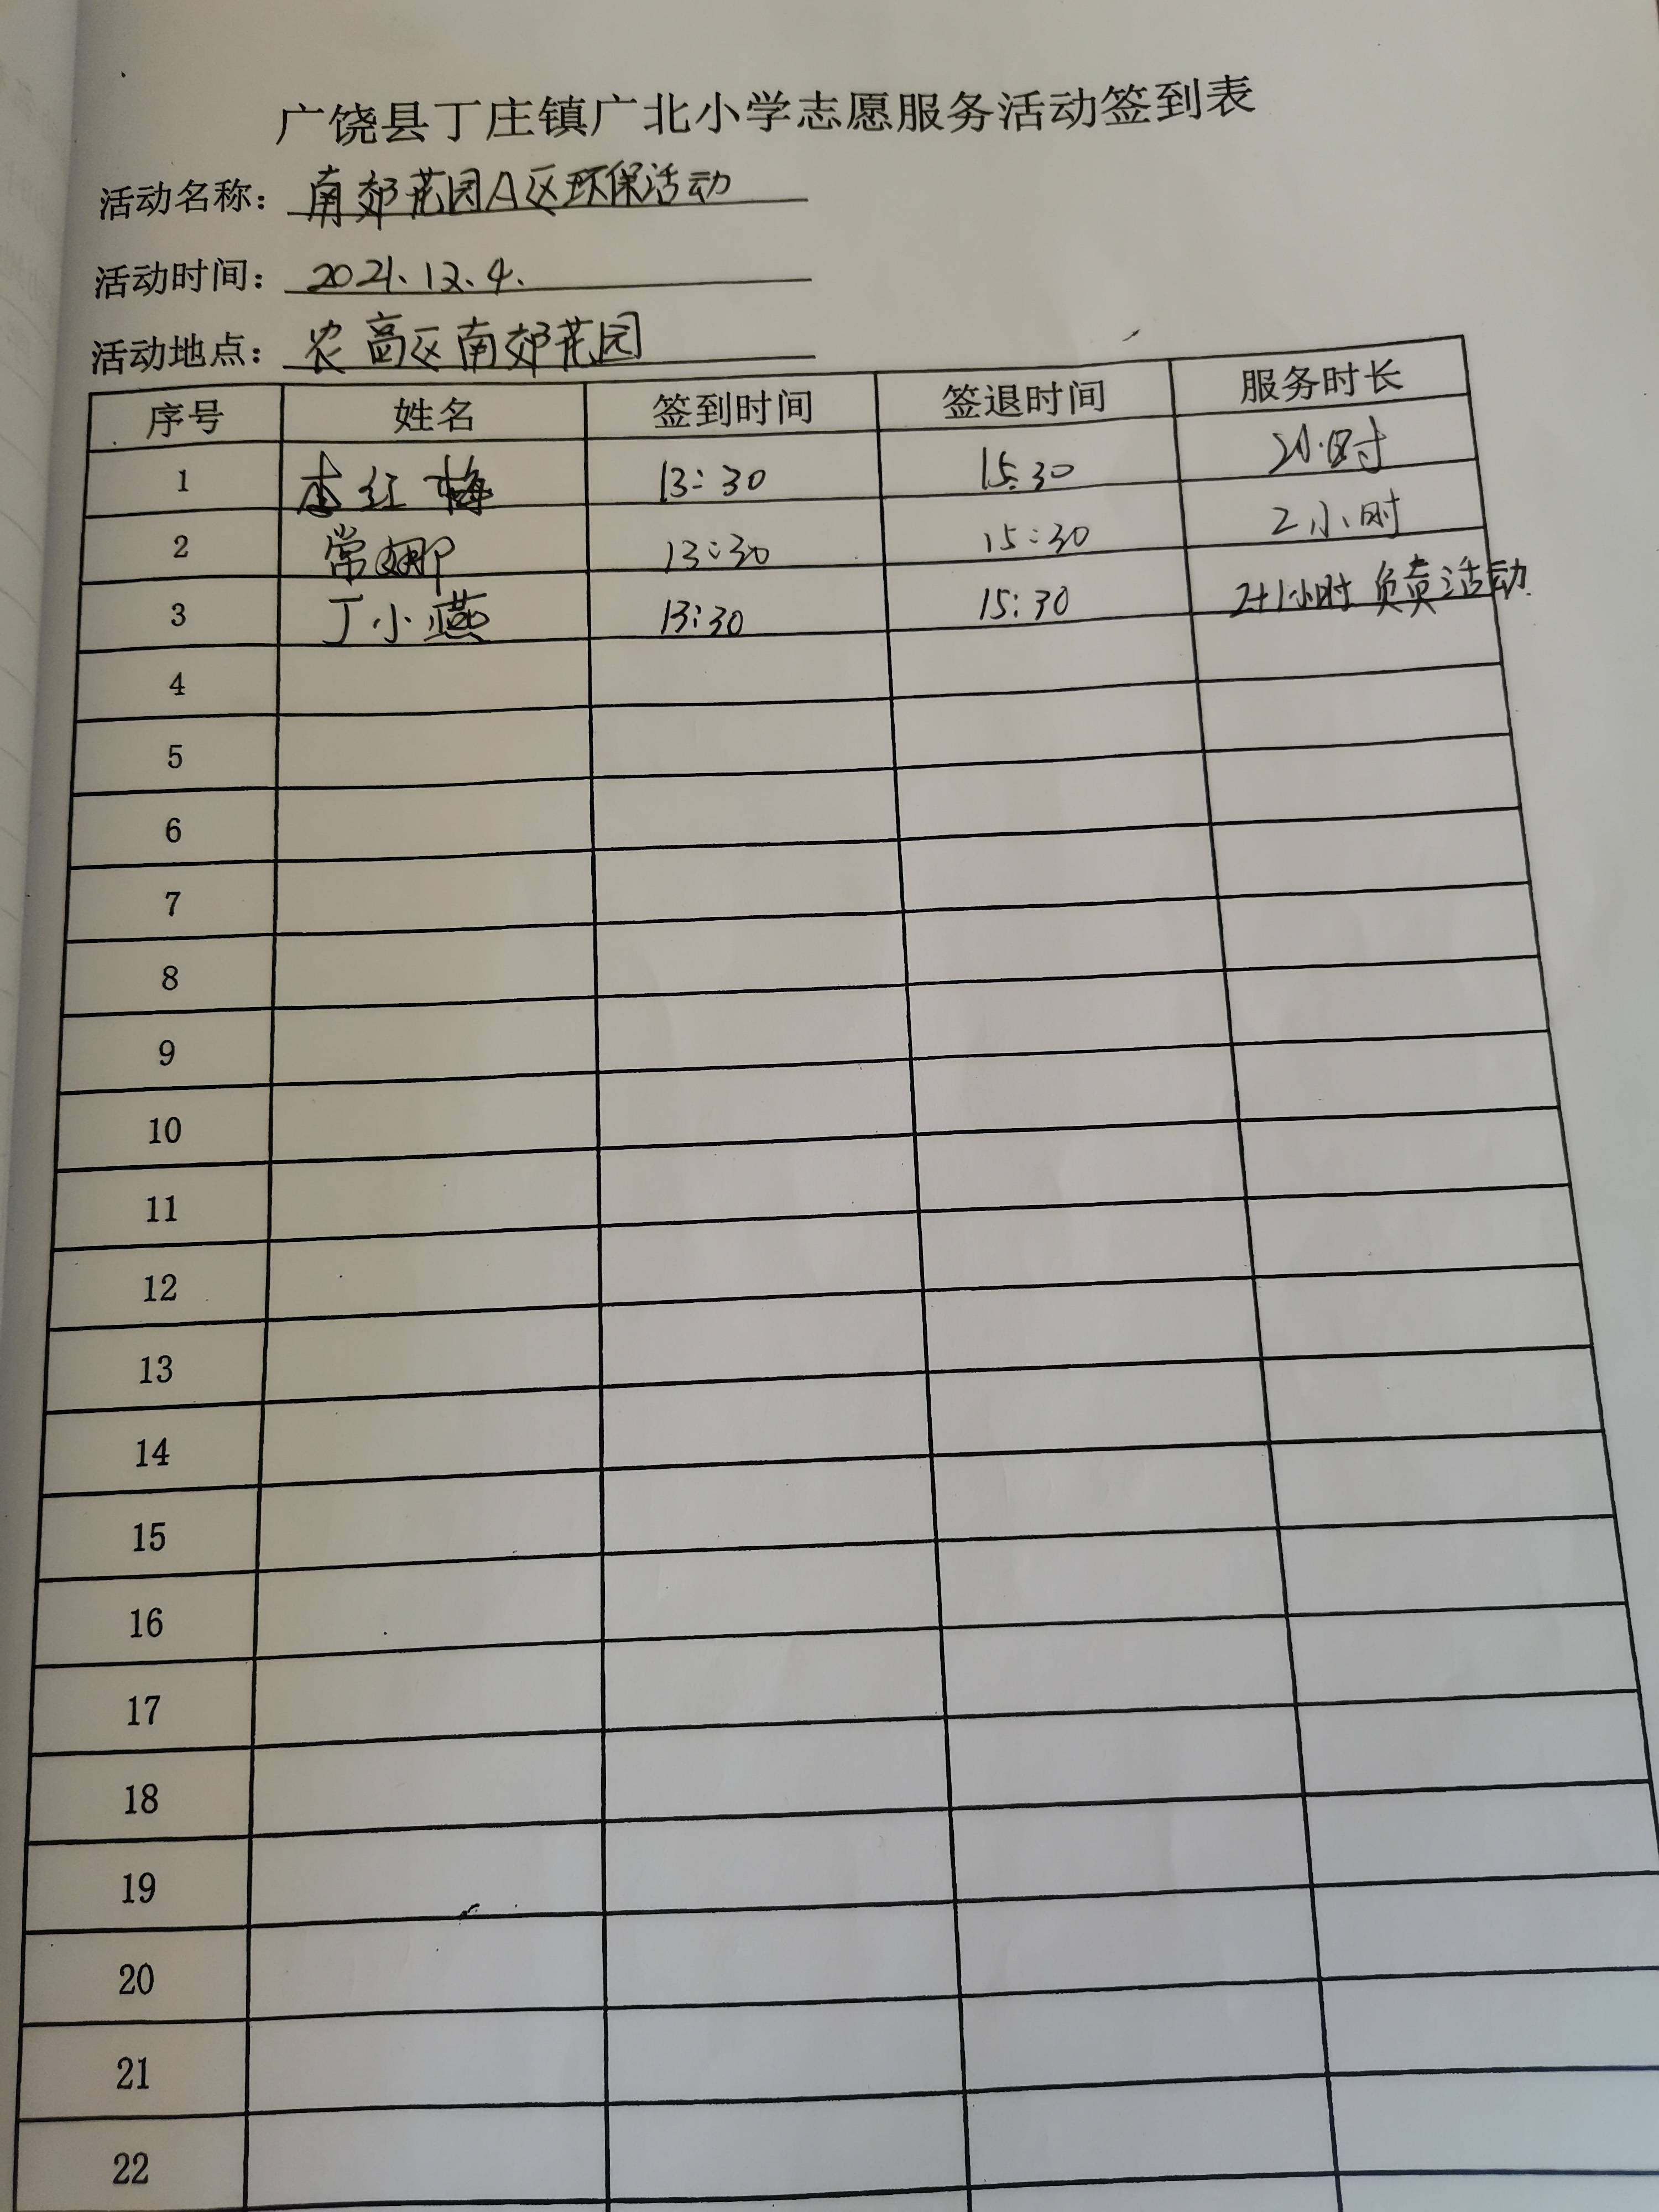 广饶县丁庄镇广北小学志愿服务活动签到表
活动名称：南郊花园A区环保活动
活动时间：2021.12.4.
活动地点：农高区南郊花园
序号 姓名 签到时间 签退时间 服务时长
1 红梅 13:30 15:30 2小时
2 常娜 13:30 15:30 2小时
3 丁小燕 13:30 15:30 2+1小时 负责活动
4
5
6
7
8
9
10
11
12
13
14
15
16
17
18
19
20
21
22